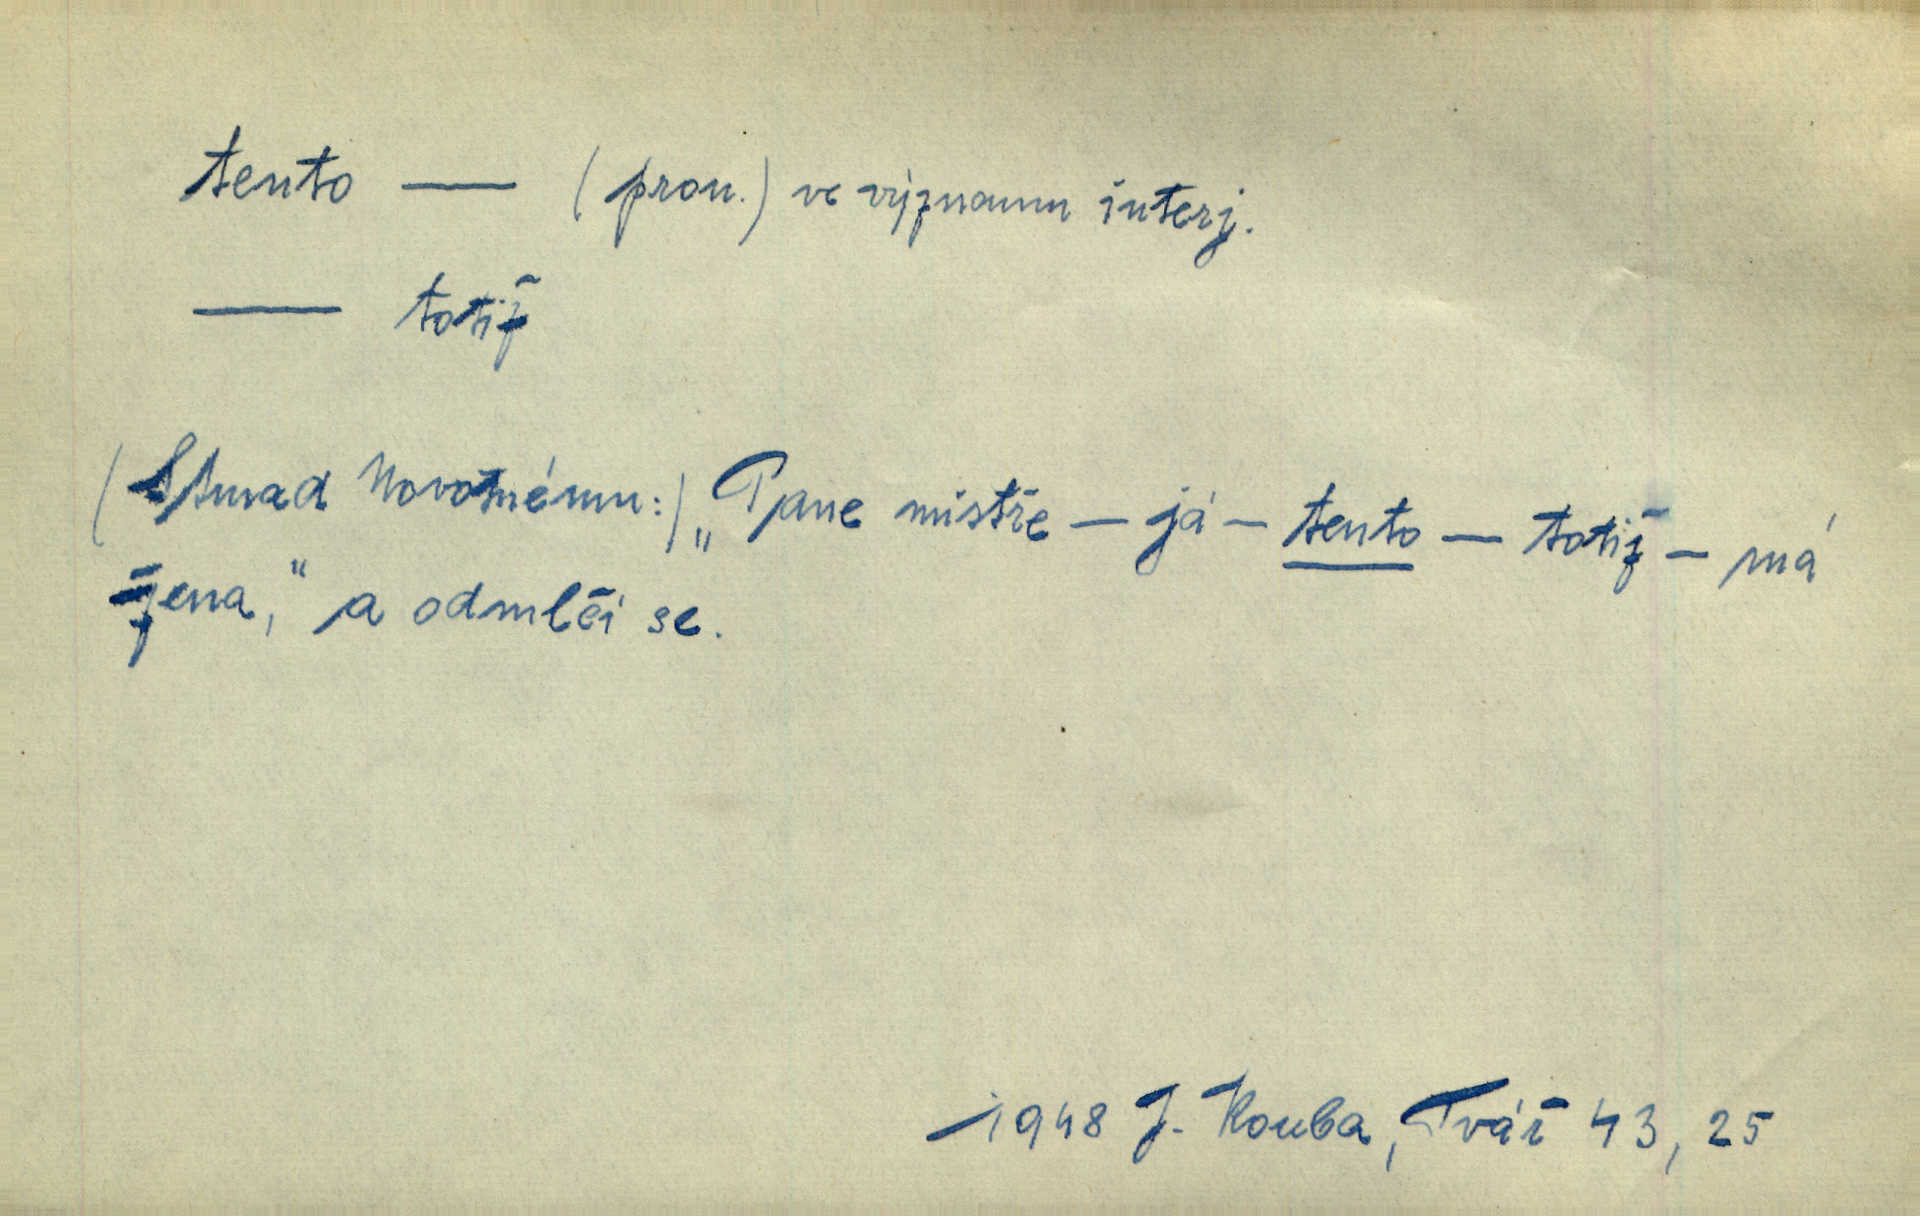 tento — (pron.) ve významu interj.
— totiž
(Strnad Novotnému:) „Pane mistře — já — tento — totiž — má
žena," a odmlčí se.
1948 J. Kouba, Tvář 43, 25